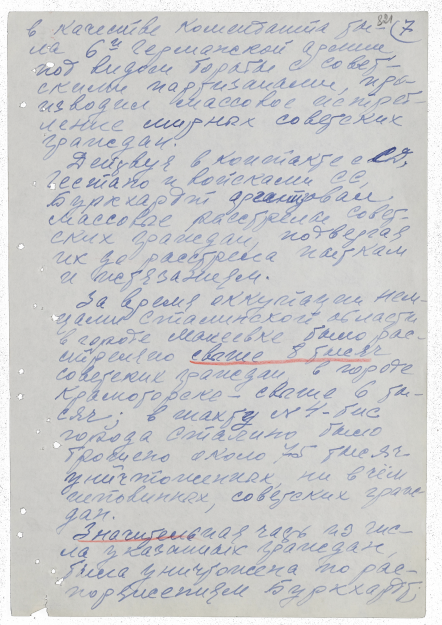 321
в качестве Коменданта ты- (7
ла 6й Германской армии
под видом борьбы с совет-
скими партизанами, про-
изводил массовое истреб-
ление мирных советских
граждан.
Действуя в контакте с СД,
гестапо и войсками СС,
Буркхардт организовал
массовые расстрелы совет-
ских граждан, подвергая
их до расстрела пыткам
и истязаниям.
За время оккупации нем-
цами Сталинской области
в городе Макеевке было рас-
стреляно свыше 8 тысяч
советских граждан в городе
Краматорске – свыше 6 ты-
сяч; в шахту № 4-бис
города Сталино было
брошено около 75 тысяч
уничтоженных, ни в чём
неповинных, советских граж-
дан.
Значительная часть из чис-
ла указанных граждан,
была уничтожена по рас-
поряжениям Буркхардт,